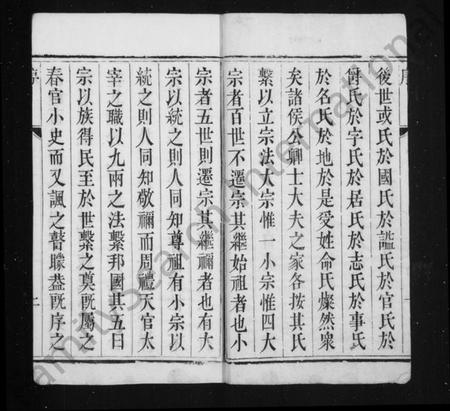 序
後世或氏於國氏於謚氏於官氏於
爵氏於字氏於居氏於志氏於事氏
於名氏於地於是受姓命氏燦然衆
矣諸侯公卿士大夫之家各按其氏
繫以立宗法大宗惟一小宗惟四大
宗者百世不遷宗其繼始祖者也小
宗者五世則遷宗其繼禰者也有大
宗以統之則人同知尊祖有小宗以
統之則人同知敬禰而周禮天官太
宰之職以九兩之法繫邦國其五曰
宗以族得民至於世繫之奠既屬之
春官小史而又諷之瞽矇葢既序之
序
二
FamilySearch International